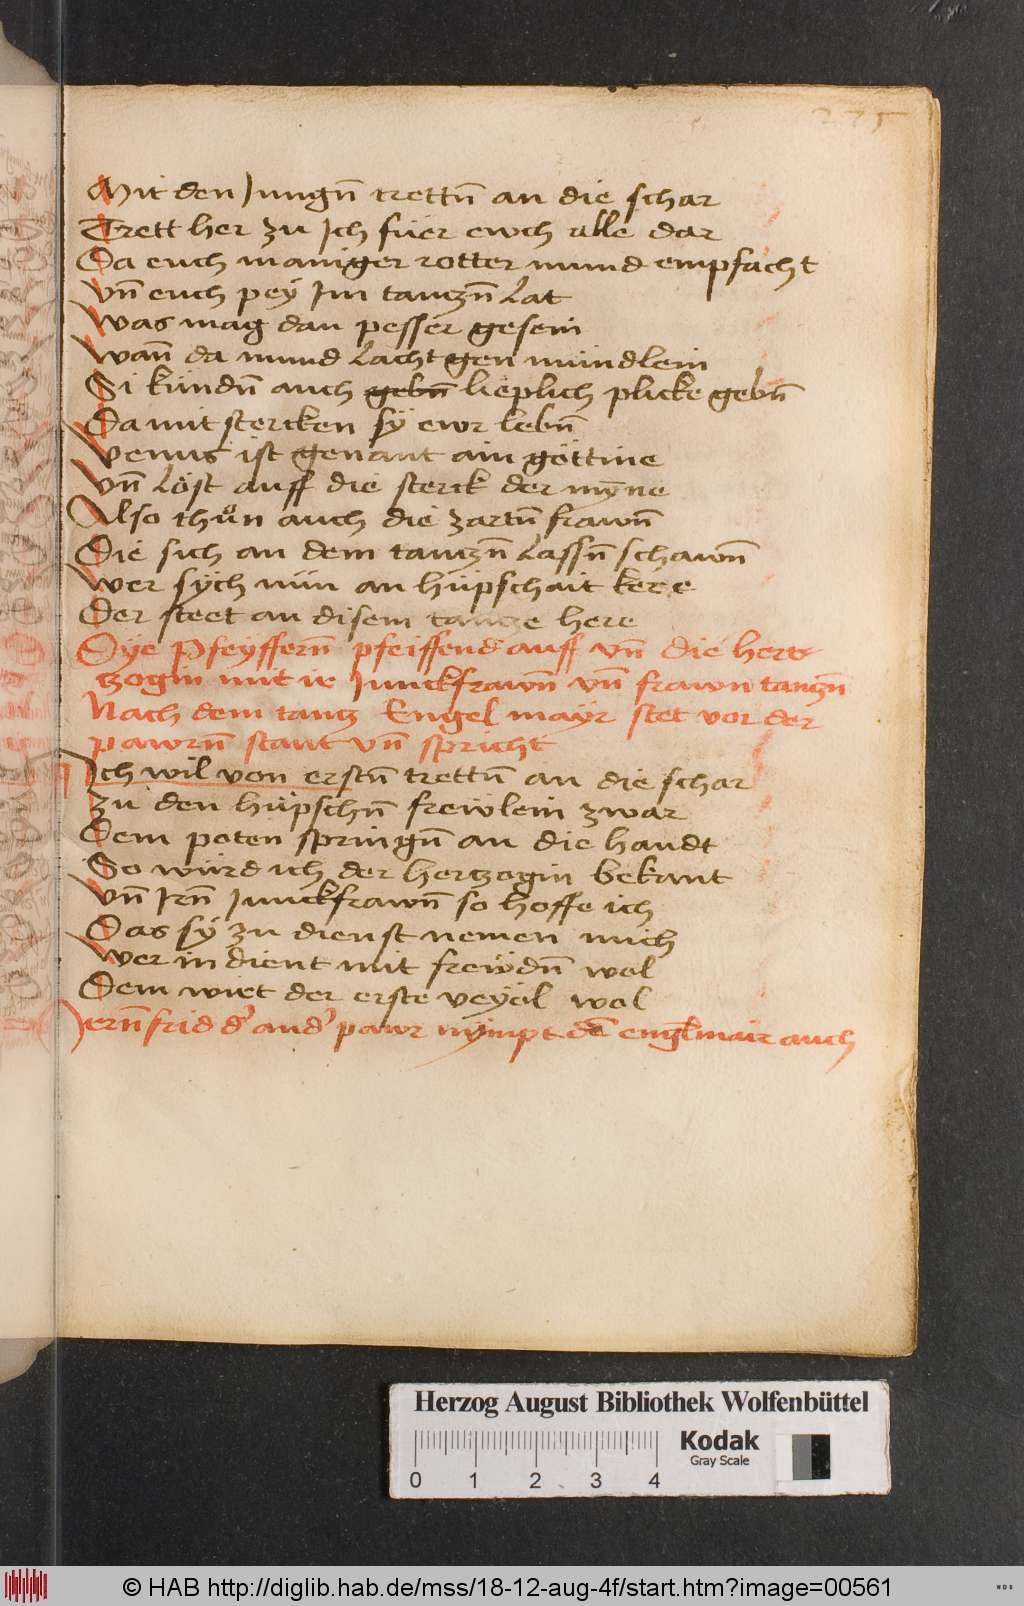 275
Mit den Jungn̄ trettn̄ an die schar
Trett her zu Ich füer ewch alle dar
Da euch maniger rotter mund empfächt
vn̄ euch peÿ Im tanczn̄ lat
was mag dan pesser gesein
wan̄ da mund lacht gen mündlein
Si kündn̄ auch gebn̄ lieplich plicke gebn̄
Da mit stercken sÿ ewr lebn̄
venus ist genant ain göttine
vn̄ löst auff die sterck der mȳne
Also thůn auch die zartn̄ frawn̄
Die sich an dem tanczn̄ lassn̄ schawn̄
wer sÿch nün an hüpschait kere
Der steet an disem tancze here
Dÿe Pfeÿffern̄ pfeiffend auff vn̄ die hert
zogin mit ir Junckfrawn̄ vn̄ frawn tanczn̄
Nach dem tantz Engelmayr stet vor der
pawrn̄ stant vn̄ spricht
Ich wil von erstn̄ trettn̄ an die schar
zu den hüpschn̄ freẅlein zwar
Dem poten springn̄ an die handt
So würd ich der hertzogin bekant
vn̄ Irn̄ Junckfrawn̄ so hoffe ich
Das sÿ zu dienst nemen mich
wer in dient mit freẅdn̄ wol
Dem wirt der erste veyol wol
Jern̄frid d' and' pawr nÿmpt dē englmair auch
Herzog August Bibliothek Wolfenbüttel
0 1 2 3 4
Kodak
Gray Scale
© HAB http://diglib.hab.de/mss/18-12-aug-4f/start.htm?image=00561